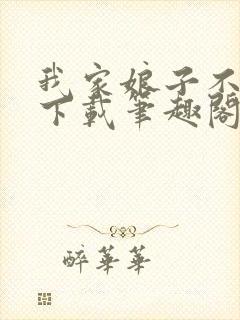 我家娘子不
下載筆趣閣
醉華華